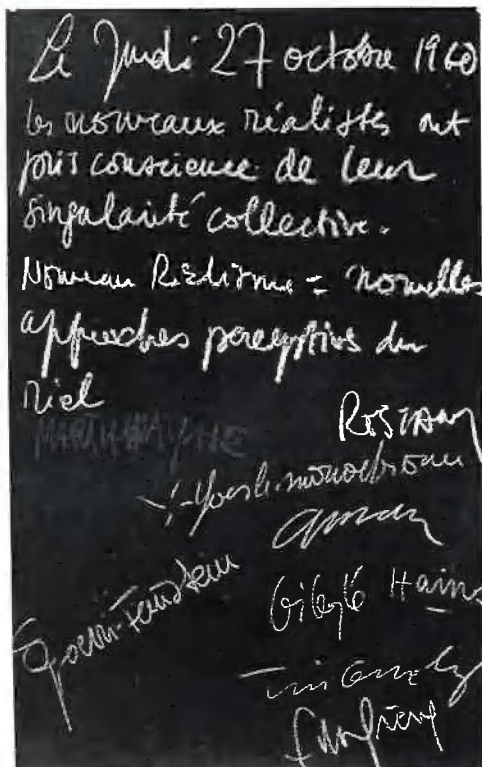 Le Jeudi 27 octobre 1960
les nouveaux réalistes ont
pris conscience de leur
singularité collective.
Nouveau Réalisme = nouvelles
approches perceptives du
réel
MARTIAL RAYSSE
RESTANY
Yves le monochrome
Arman
Spoerri-Feinstein
Villeglé Hains
Tinguely
f dufrêne